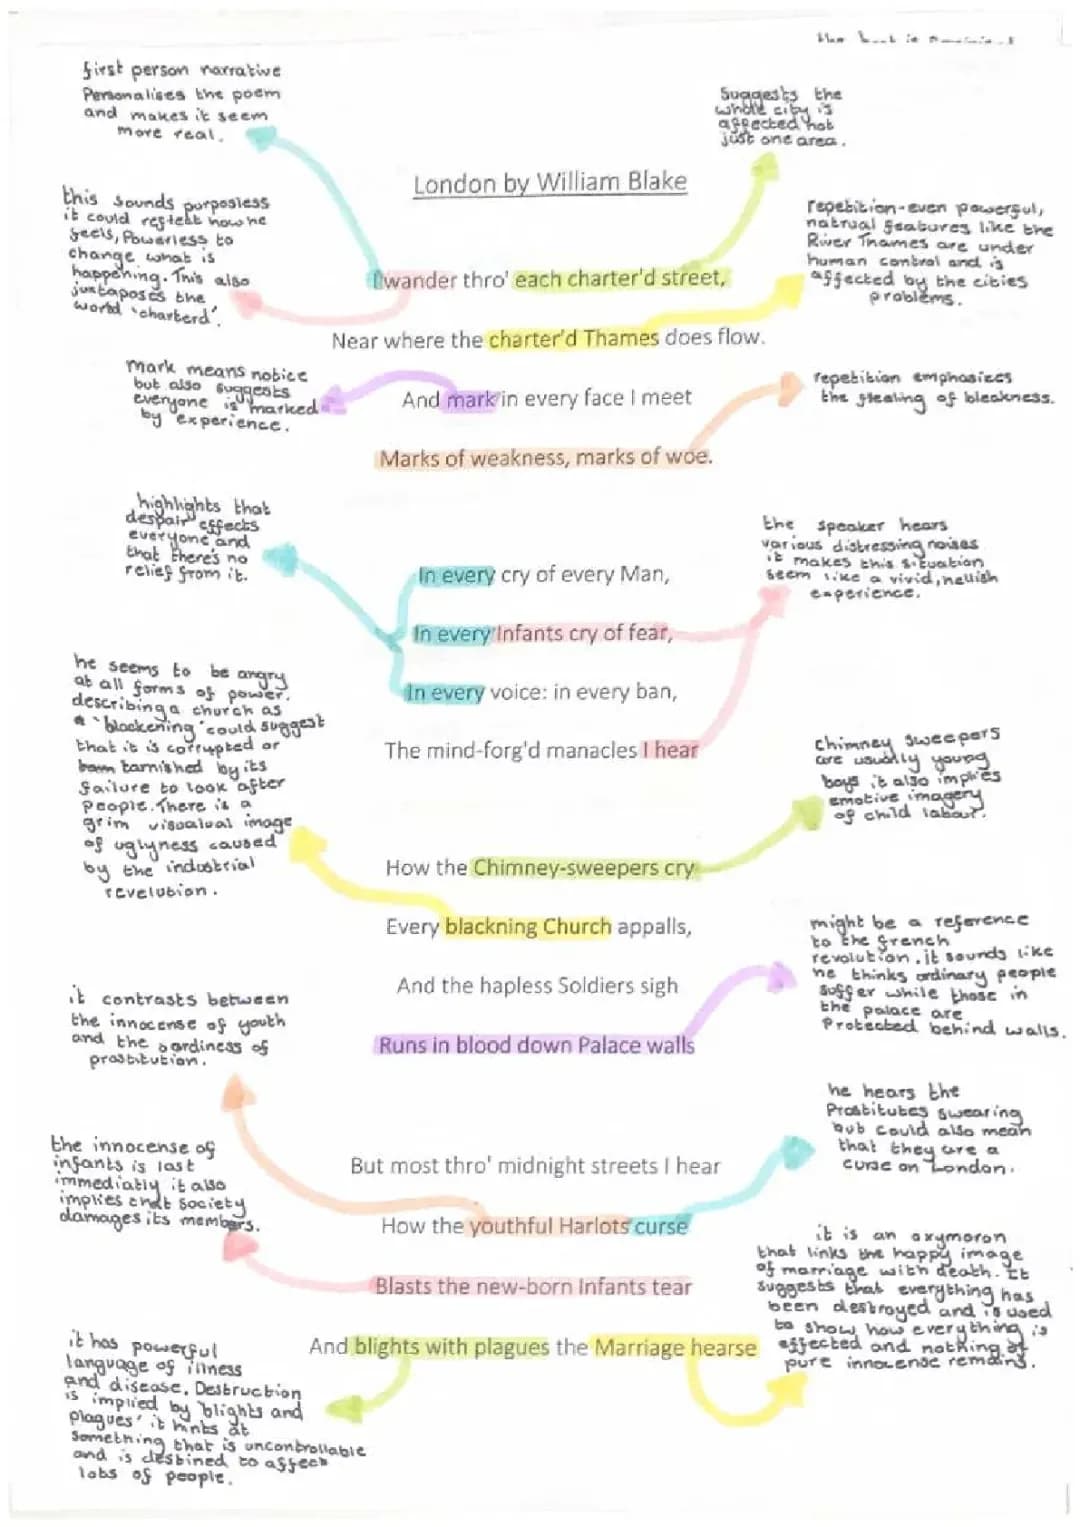 first person narrative
Personalises the poem
and makes it seem
more real.
Suggests the
whole city is
affected not
just one area.
London by William Blake
this sounds purposless
it could reflect how he
feels, Powerless to
change what is
happening. This also
juxtaposes the
world 'charterd'.
repetition-even powerful,
natrual features like the
River Thames are under
human control and is
affected by the cities
problems.
I wander thro' each charter'd street,
Near where the charter'd Thames does flow.
mark means notice
but also suggests
everyone is 'marked'
by experience.
And mark in every face I meet
repetition emphasizes
the feeling of bleakness.
Marks of weakness, marks of woe.
highlights that
despair effects
everyone and
that there's no
relief from it.
the speaker hears
various distressing noises
it makes this situation
seem like a vivid, hellish
experience.
In every cry of every Man,
In every Infants cry of fear,
In every voice: in every ban,
The mind-forg'd manacles I hear
he seems to be angry
at all forms of power.
describing a church as
a 'blackening' could suggest
that it is corrupted or
tarnished by its
failure to look after
people. There is a
grim visualual image
of uglyness caused
by the industrial
revelution.
chimney sweepers
are usually young
boys it also implies
emotive imagery
of child labour.
How the Chimney-sweepers cry
Every blackning Church appalls,
And the hapless Soldiers sigh
Runs in blood down Palace walls
might be a reference
to the french
revolution. it sounds like
he thinks ordinary people
suffer while those in
the palace are
Protected behind walls.
it contrasts between
the innocense of youth
and the sordiness of
prostitution.
he hears the
Prostitutes swearing
but could also mean
that they are a
curse on London.
the innocense of
infants is lost
immediatly it also
implies that society
damages its members.
But most thro' midnight streets I hear
How the youthful Harlots curse
Blasts the new-born Infants tear
And blights with plagues the Marriage hearse
it is an oxymoron
that links the happy image
of marriage with death. It
suggests that everything has
been destroyed and is used
to show how everything is
effected and nothing of
pure innocense remains.
it has powerful
language of illness
and disease. Destruction
is implied by 'blights and
plagues' it hints at
something that is uncontrollable
and is destined to affect
lots of people.